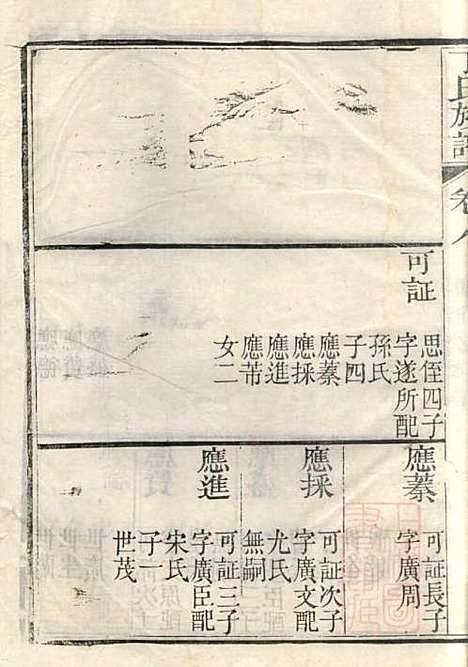 氏族譜
卷八
可証
思侄四子
字遂所配
孫氏
子四
應蓁
應採
應進
應芾
女二
應蓁
可証長子
字廣周
應採
可証次子
字廣文配
尤氏
無嗣
應進
可証三子
字廣臣配
宋氏
子一
世茂